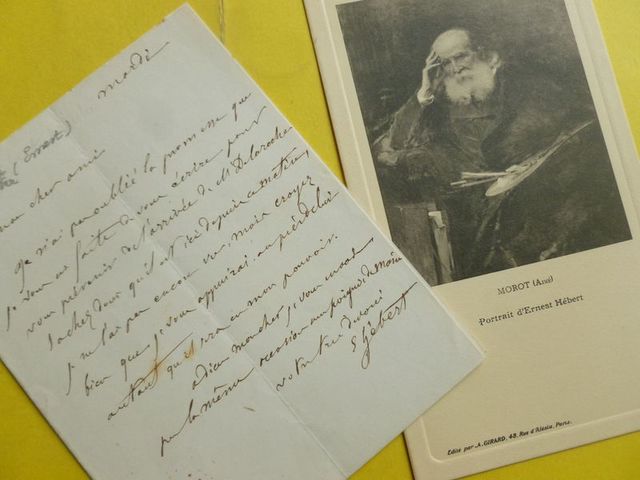 mardi
(Ernest)
mon cher ami
Je n'ai pas oublié la promesse que
je vous ai faite de vous écrire pour
vous prévenir de l'arrivée de Mr Delaroche
sachez donc qu'il est ici depuis ce matin,
je ne l'ai pas encore vu, mais croyez
bien que je vous appuirai
autant qu'il sera en mon pouvoir.
adieu mon cher je vous
par la même occasion
votre
E Hébert
MOROT (Aimé)
Portrait d'Ernest Hébert
Edité par A. GIRARD, 48, Rue d'Alésia, Paris.